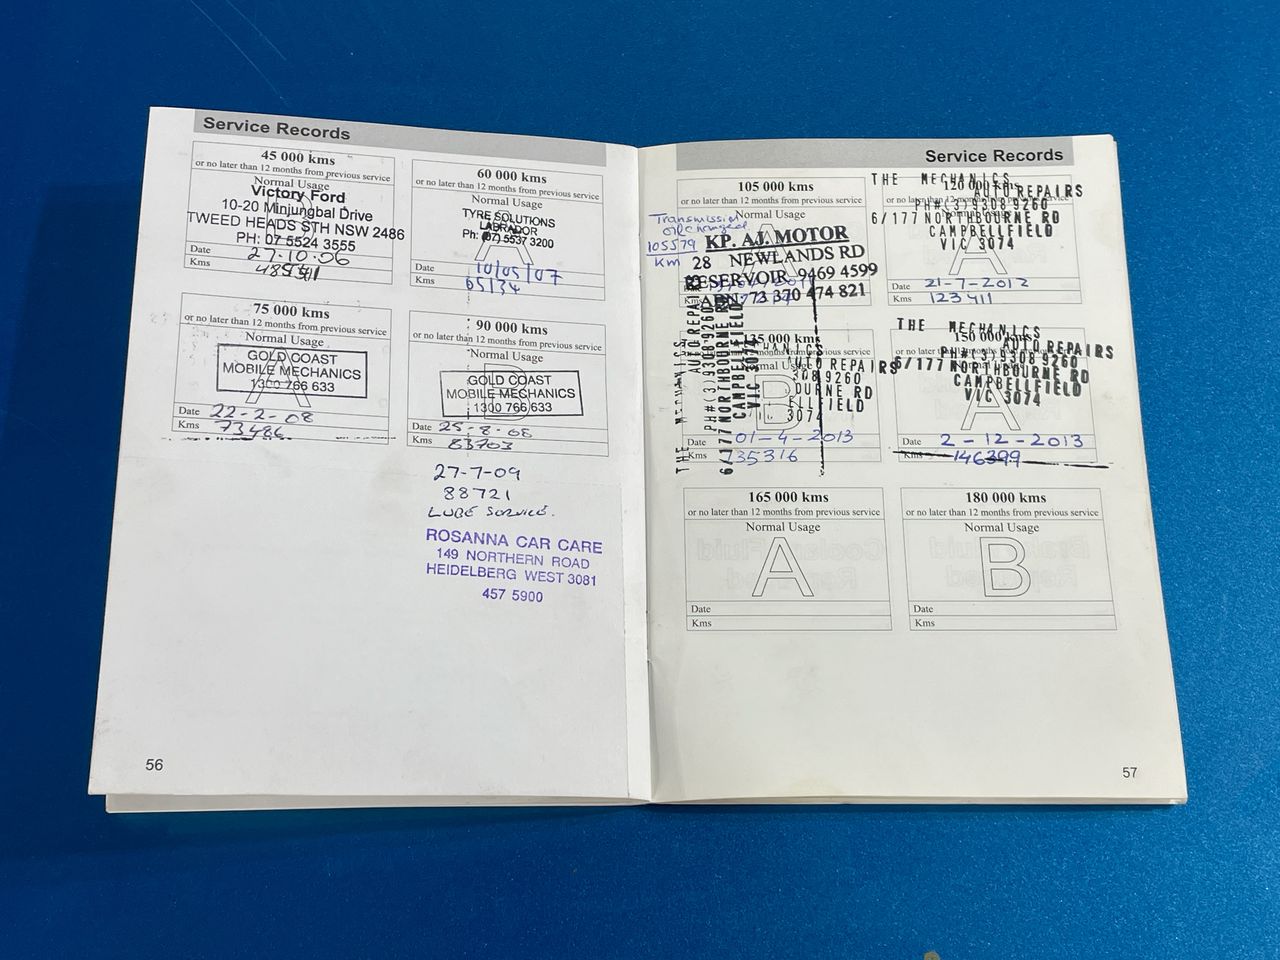 Service Records
45 000 kms
or no later than 12 months from previous service
Normal Usage
Victory Ford
10-20 Minjungbal Drive
TWEED HEADS STH NSW 2486
PH: 07 5524 3555
Date 27-10-06
Kms
60 000 kms
or no later than 12 months from previous service
Normal Usage
TYRE SOLUTIONS
LABRADOR
Ph: (07) 5537 3200
A
Date 10/05/07
Kms 65134
75 000 kms
or no later than 12 months from previous service
Normal Usage
A
GOLD COAST
MOBILE MECHANICS
1300 766 633
Date 22-2-08
Kms 73486
90 000 kms
or no later than 12 months from previous service
Normal Usage
GOLD COAST
MOBILE MECHANICS
1300 766 633
Date 25-8-08
Kms 83703
27-7-09
88721
LUBE SERVICE.
ROSANNA CAR CARE
149 NORTHERN ROAD
HEIDELBERG WEST 3081
457 5900
56
Service Records
105 000 kms
or no later than 12 months from previous service
Normal Usage
Transmission
oil changed
105579
Km
KP. AJ. MOTOR
28 NEWLANDS RD
RESERVOIR 9469 4599
ABN: 73 370 474 821
THE MECHANICS
120 000 kms
AUTO REPAIRS
PH#(3)9308 9260
6/177 NORTHBOURNE RD
CAMPBELLFIELD
VIC 3074
A
Date 21-7-2012
Kms 123411
135 000 kms
THE MECHANICS
AUTO REPAIRS
PH#(3)9308 9260
6/177 NORTHBOURNE RD
CAMPBELLFIELD
VIC 3074
B
AUTO REPAIRS
Date 01-4-2013
Kms 135316
THE MECHANICS
150 000 kms
AUTO REPAIRS
PH#(3)9308 9260
6/177 NORTHBOURNE RD
CAMPBELLFIELD
VIC 3074
A
Date 2-12-2013
Kms 146399
165 000 kms
or no later than 12 months from previous service
Normal Usage
A
Date
Kms
180 000 kms
or no later than 12 months from previous service
Normal Usage
B
Date
Kms
57